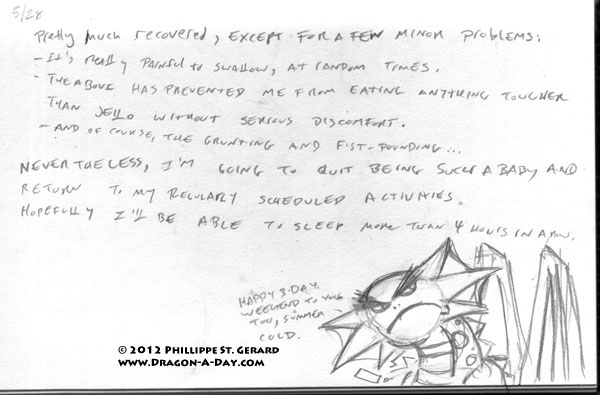 5/28
Pretty much recovered, EXCEPT FOR A FEW MINOR PROBLEMS:
- It's really PAINFUL to SWALLOW, AT RANDOM TIMES.
- THE ABOVE HAS PREVENTED ME FROM EATING ANYTHING TOUGHER
THAN JELLO WITHOUT SERIOUS DISCOMFORT.
- AND OF COURSE, THE GRUNTING AND FIST-POUNDING...
NEVERTHELESS, I'M GOING TO QUIT BEING SUCH A BABY AND
RETURN TO MY REGULARLY SCHEDULED ACTIVITIES.
HOPEFULLY I'll BE ABLE TO SLEEP MORE THAN 4 HOURS IN A ROW.
HAPPY 3-DAY
WEEKEND TO YOU
TOO, SUMMER
COLD.
© 2012 PHILLIPPE ST. GERARD
WWW.DRAGON-A-DAY.COM